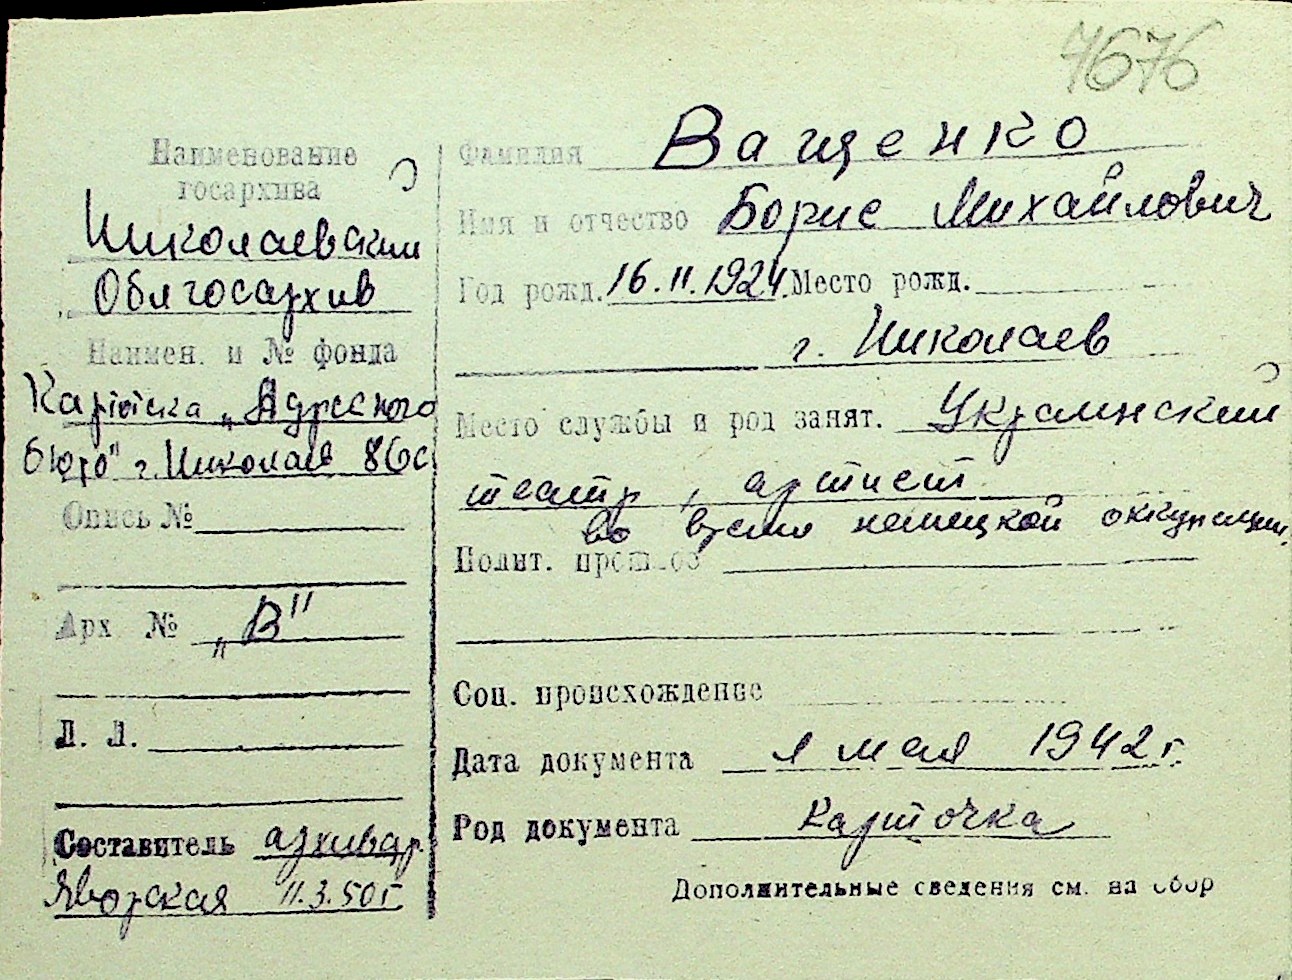 7676
Наименование
госархива
Николаевский
Облгосархив
Наимен. и № фонда
Картотека „Адресного
бюро" г. Николаев 86с
Опись №
Арх № „В"
Л. Л.
Составитель архивар.
Яворская 11.3.50г
Фамилия Ващенко
Имя и отчество Борис Михайлович
Год рожд. 16.11.1924. Место рожд.
г. Николаев
Место службы и род занят. Украинский
театр, артист
во время немецкой оккупации.
Полит. прошлое
Соц. происхождение
Дата документа 1 мая 1942 г.
Род документа Карточка
Дополнительные сведения см. на обор